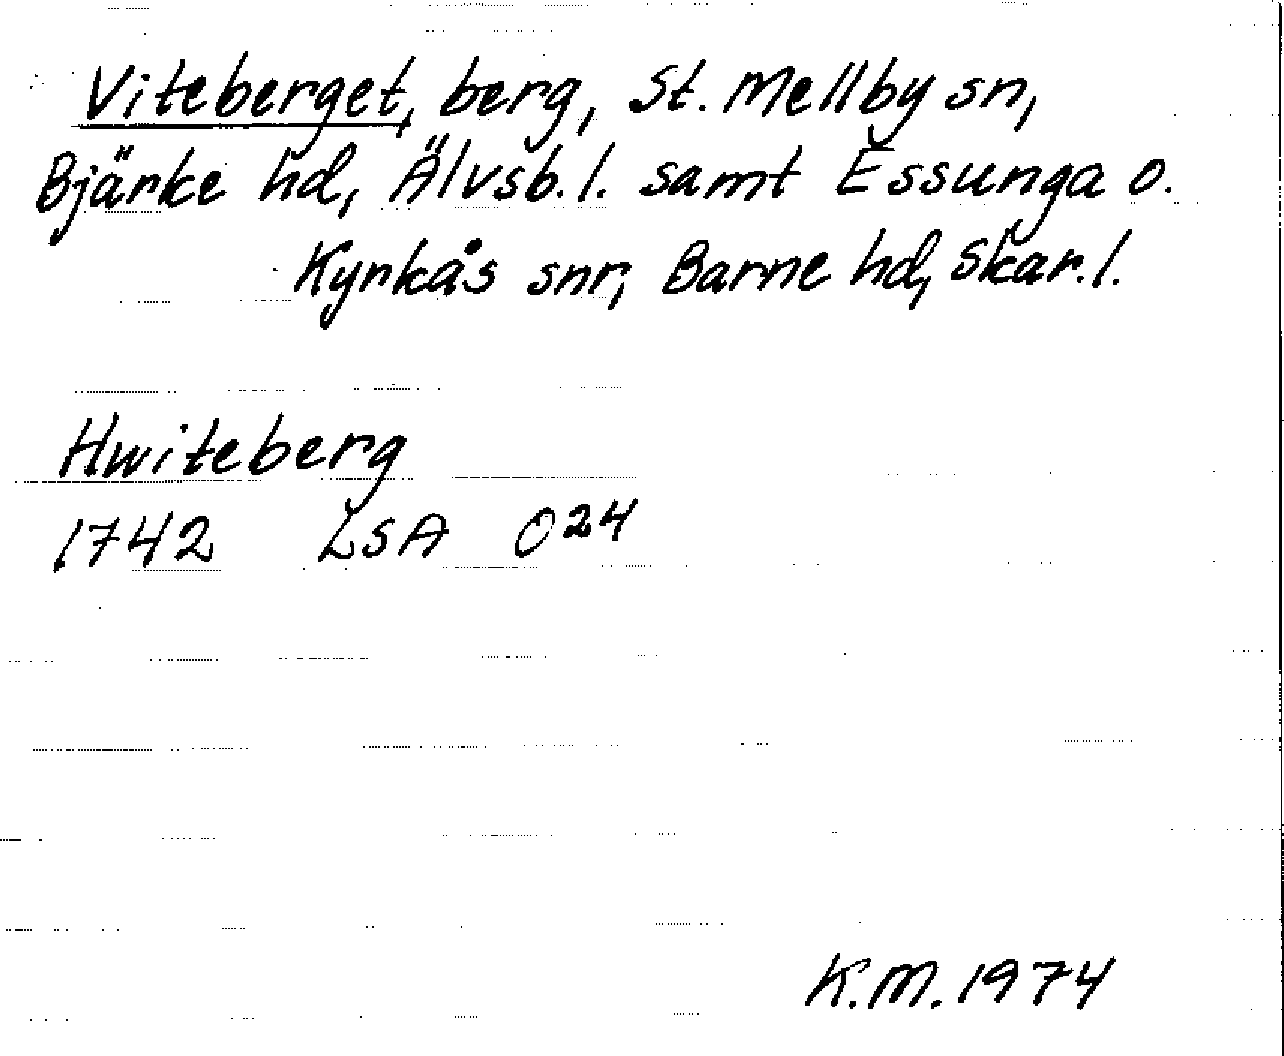 Viteberget, berg, St. Mellby sn,
Bjärke hd, Älvsb. l. samt Essunga o.
Kyrkås snr, Barne hd, Skar. l.
Hwiteberg
1742 LSA O24
K.M. 1974